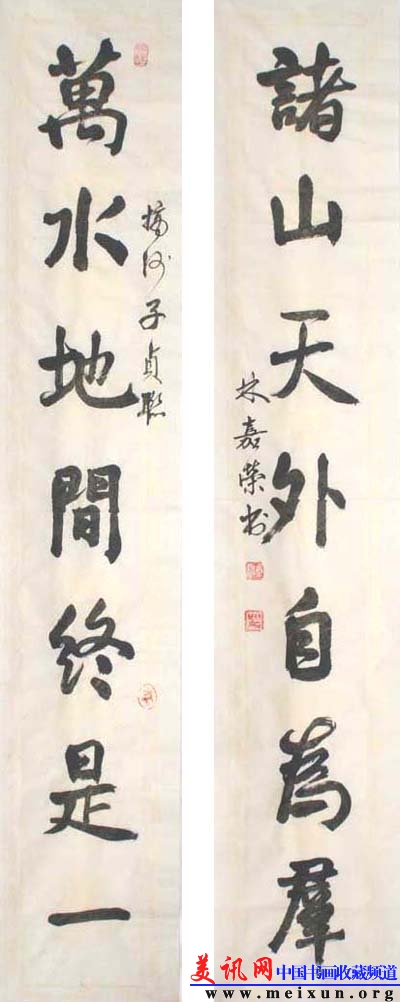 萬水地間終是一
何子貞聯
諸山天外自為羣
林嘉榮书
美讯网 中国书画收藏频道
www.meixun.org